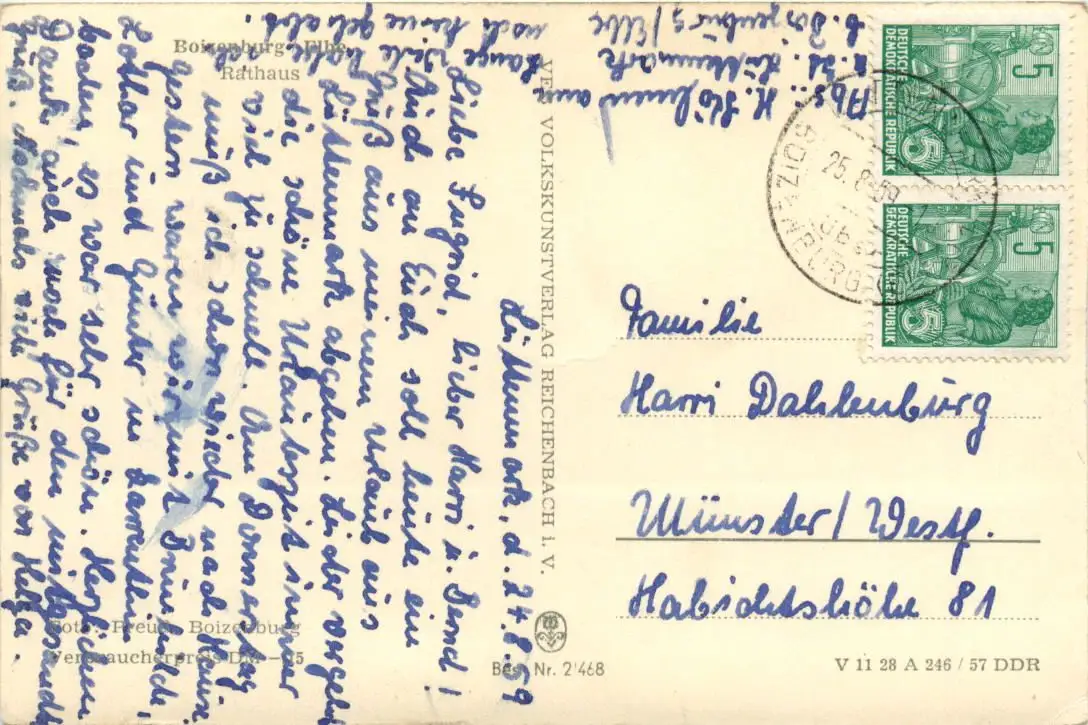 Boizenburg Elbe
Rathaus
Lüttenmark, d. 24.8.59
Liebe Ingrid, lieber Harri u. Bernd!
Auch an Euch soll heute ein
Gruß aus meinem Urlaub aus
Lüttenmark abgehen. Leider vergeht
die schöne Urlaubszeit immer
viel zu schnell. Am Donnerstag
muß ich schon wieder nach Hause.
Gestern waren wir mit Brunhilde,
Lothar und Günter in
baden, es war sehr schön. Herzlichen
Dank auch noch für den mitgesandten
Gruß. Nochmals viele Grüße von Helga.
lange Zeit habe ich
noch keine gehabt.
Abs.: H.
z. Zt. Lüttenmark
b. Boizenburg/Elbe
VEB VOLKSKUNSTVERLAG REICHENBACH i. V.
Foto: Preuß, Boizenburg
Verbraucherpreis DM –25
Best. Nr. 2'468
DEUTSCHE
DEMOKRATISCHE REPUBLIK
5
5
DEUTSCHE
DEMOKRATISCHE REPUBLIK
5
5
BOIZENBURG
25.8.59
Familie
Harri Dahlenburg
Münster/Westf.
Habichtshöhe 81
V 11 28 A 246 / 57 DDR